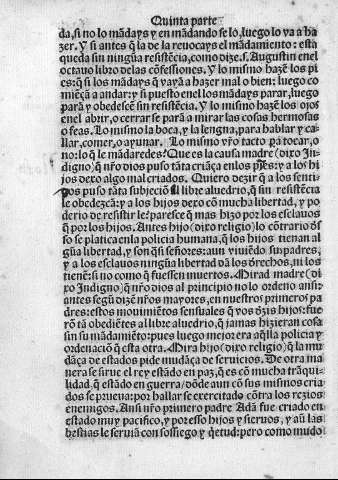 Quinta parte
da, si no lo mãdays y en mãdando se lo, luego lo va a ha
zer. Y si antes q̃ la de la reuocays el mãdamiento: esta
queda sin ningũa resistẽcia, como dize. s. Augustin en el
octauo libro de las cõfessiones. Y lo mismo hazẽ los pi
es: q̃ si los mãdays q̃ vayã a hazer mal o bien: luego co
miẽçã a andar: y si puesto en el los mãdays parar, luego
parã y obedescẽ sin resistẽcia. Y lo mismo hazẽ los ojos
en el abrir, o cerrar se parã a mirar las cosas hermosas
o feas. Lo mismo la boca, y la lengua, para hablar y ca/
llar, comer, o ayunar. Lo mismo vr̃o tacto pa tocar, o
no: lo q̃ le mãdaredes? Que es la causa madre (dixo In/
digno) q̃ nr̃o dios puso tãta criãça en los pies: y a los hi
jos dexo algo mal criados. Quiero dezir q̃ a los senti/
dos puso tãta subjeciõ al libre aluedrio, q̃ sin resistẽcia
le obedezcã: y a los hijos dexo cõ mucha libertad, y po
derio de resistir le? paresce q̃ mas hizo por los esclauos
q̃ por los hijos. Antes hijo (dixo religiõ) lo cõtrario dẽs
so se platica en la policia humana, q̃ los hijos tienan al
gũa libertad, y son q̃si señores: aun viuiẽdo sus padres,
y a los esclauos ningũa libertad dã los drechos, ni los
tienẽ: si no como q̃ fuessen muertos. Mirad madre (di
xo Indigno) q̃ nr̃o dios al principio no lo ordeno ansi:
antes segũ dizẽ nr̃os mayores, en nuestros primeros pa
dres: estos mouimiẽtos sensuales q̃ vos dẽzis hijos: fue
rõ tã obediẽtes al libre aluedrio, q̃ jamas hizieran cosa
sin su mãdamiẽto: pues luego mejor era aq̃lla policia y
ordenaciõ q̃ esta otra. Mira hijo (dixo religiõ) q̃ la mu
dãça de estados pide mudãça de seruicios. De otra ma
nera se sirue el rey estãdo en paz, q̃ es cõ mucha trãqui/
lidad, q̃ estãdo en guerra / dõde aun cõ sus mismos cria
dos se prueua: por hallar se exercitado cõtra los rezios
enemigos. Ansi nr̃o primero padre Adã fue criado en
estado muy pacifico, y por esso hijos y sieruos, y aũ las
bestias le seruiã con sossiego y q̃etud: pero como mudo